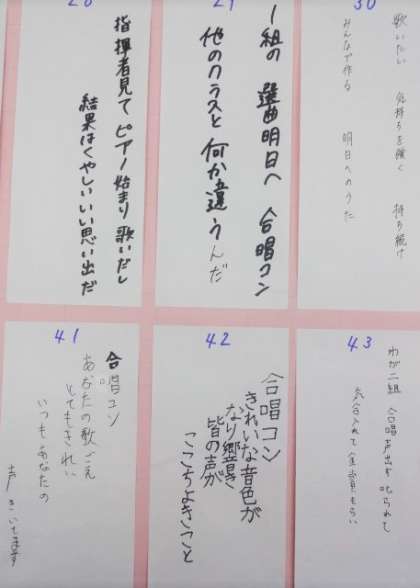 28
指揮者見て ピアノ始まり 歌いだし
結果はくやしいいい思い出だ
29
1組の 選曲明日へ 合唱コン
他のクラスと 何か違うんだ
30
歌いたい 気持ちを強く 持ち続け
みんなで作る 明日へのうた
41
合唱コン
あなたの歌ごえ
とてもきれい
いつもあなたの
声きいてます
42
合唱コン
きれいな音色が
なり響き
皆の声が
ここちよきこと
43
わが二組 合唱声出ず 叱られて
気合入れて金賞もらい